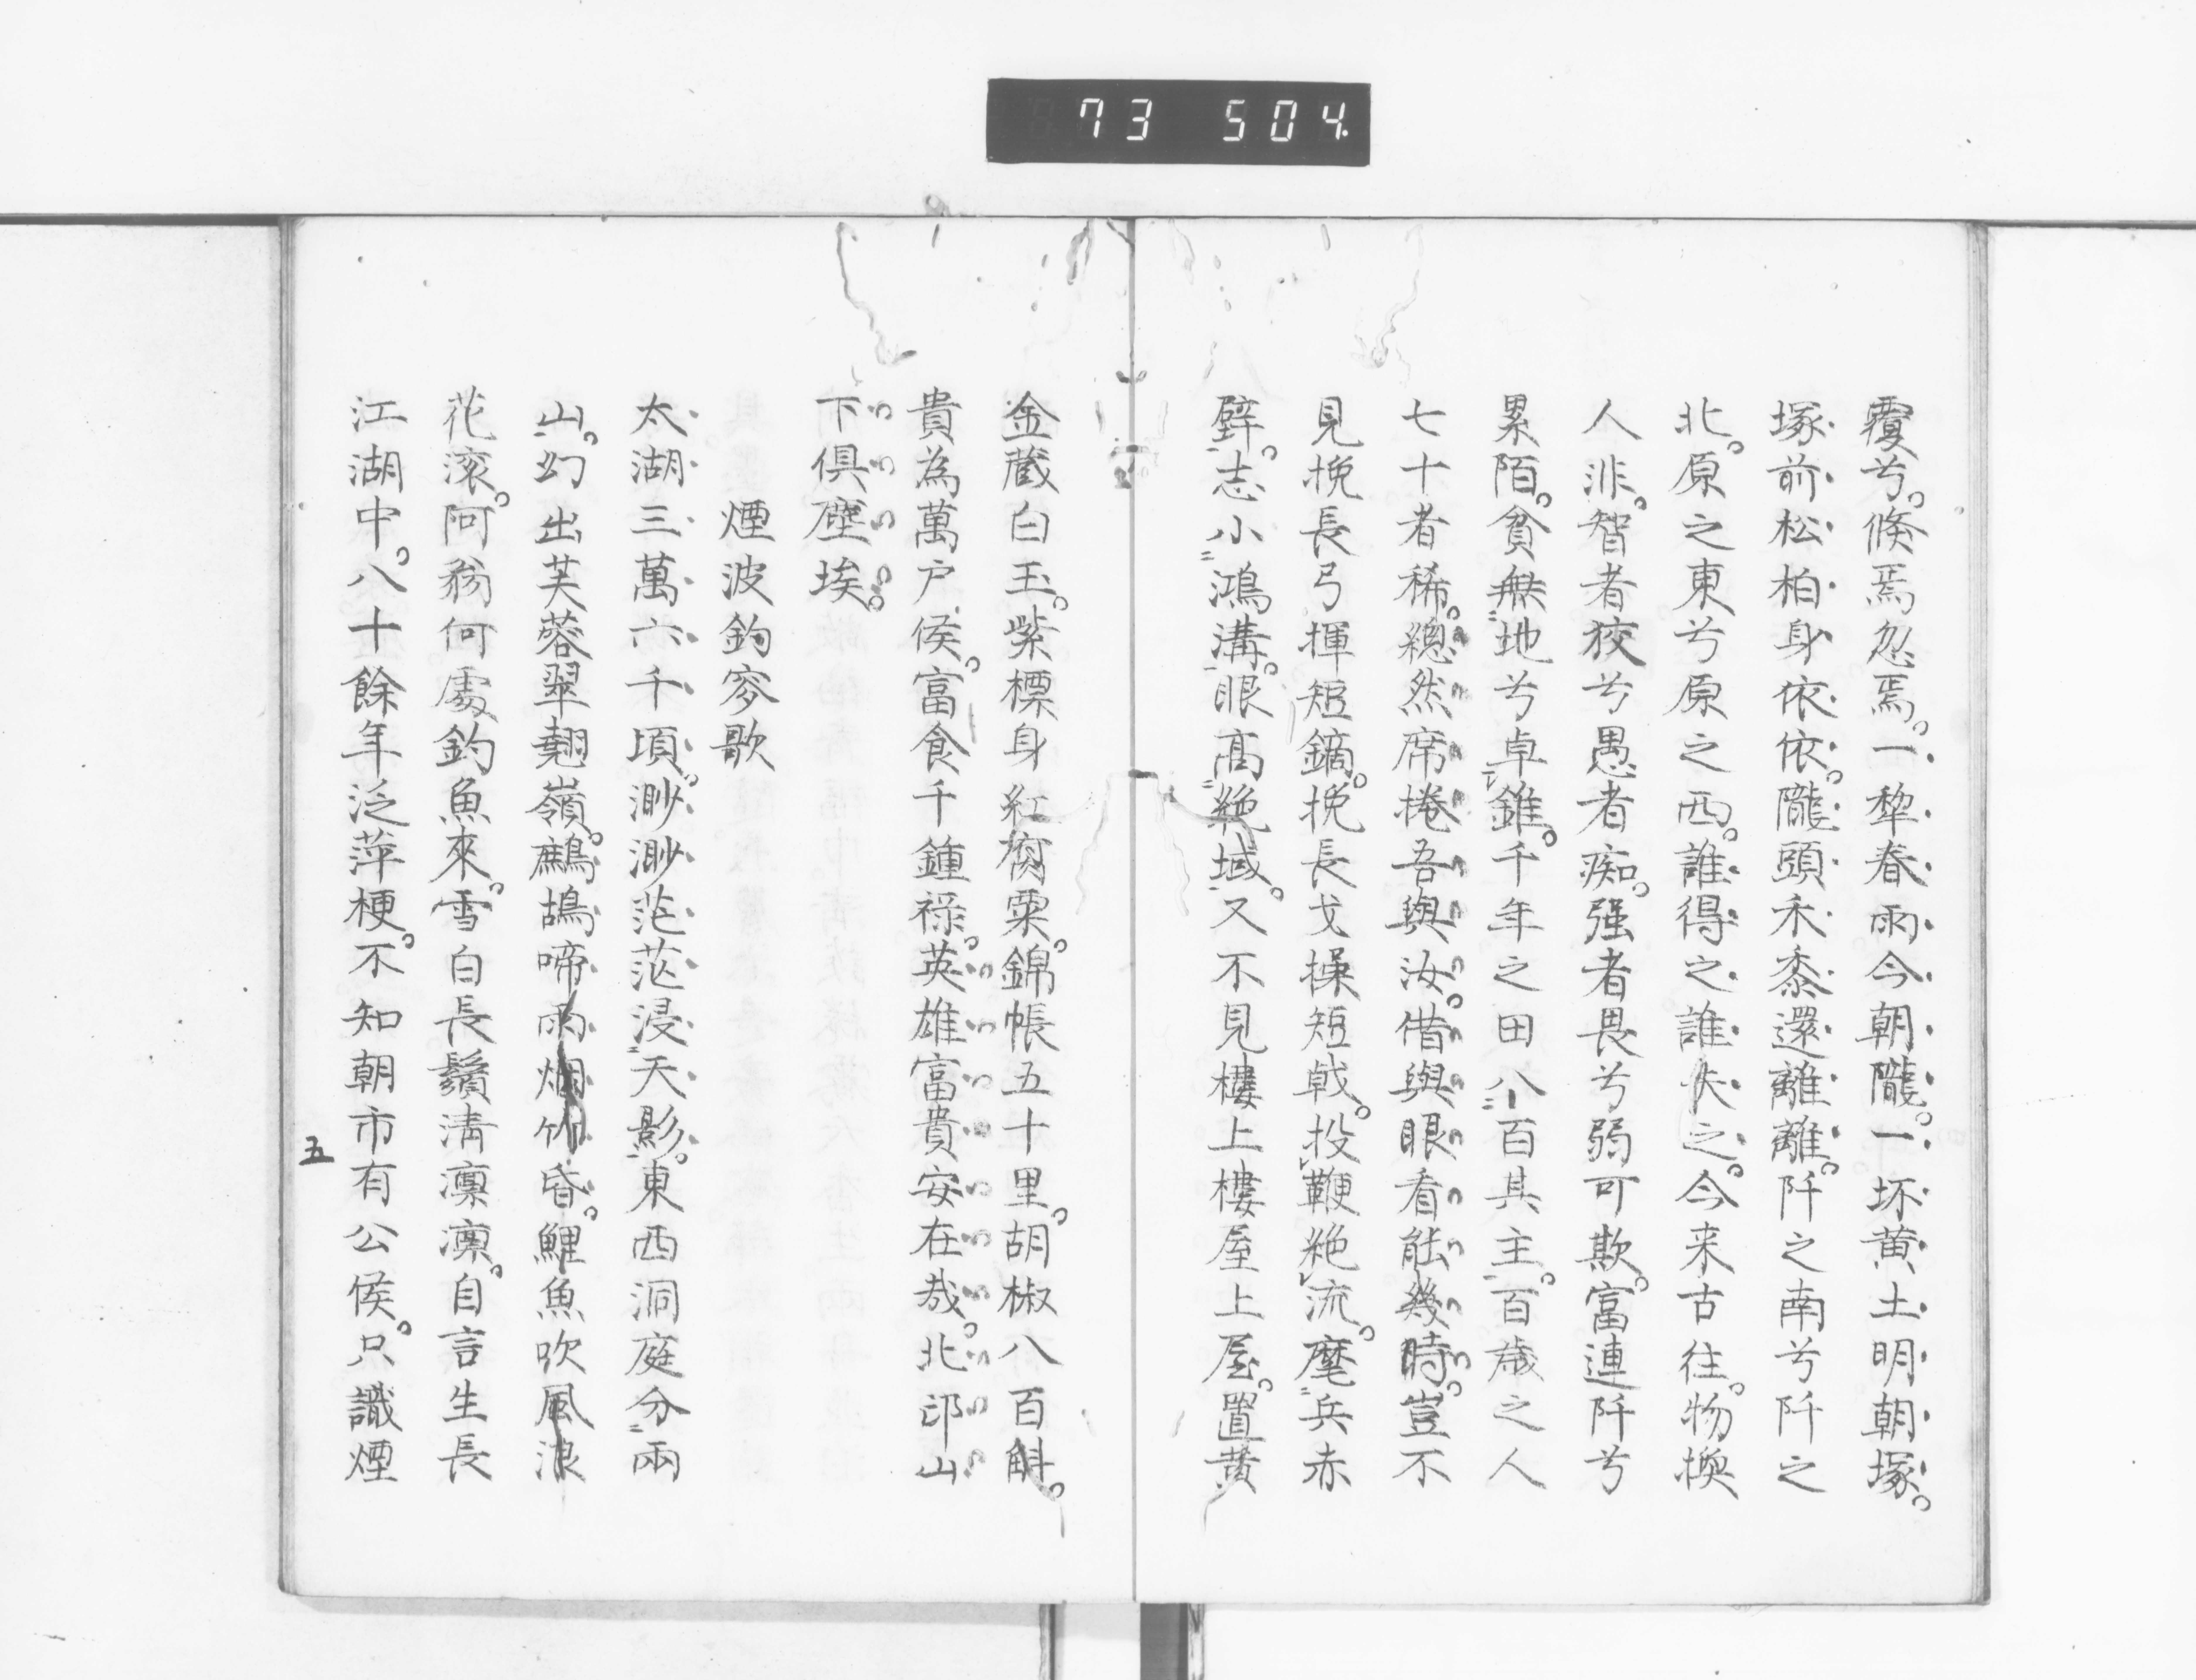 73 504.
覆兮。倏焉忽焉。一犂春雨今朝隴。一坏黄土明朝塚。
塚前松柏身依依。隴頭禾黍還離離。阡之南兮阡之
北。原之東兮原之西。誰得之誰失之。今来古往。物換
人非。智者狡兮愚者痴。强者畏兮弱可欺。富連阡兮
累陌。貧無地兮卓錐。千年之田八百其主。百歳之人
七十者稀。總然席捲吾與汝。借與眼看能幾時。豈不
見挽長弓揮短鏑。挽長戈操短戟。投鞭絶流。麾兵赤
壁。志小鴻溝。眼高絶域。又不見樓上樓屋上屋。置黄
金蔵白玉。紫標身紅腐粟。錦帳五十里。胡椒八百斛。
貴為萬户侯。富食千鍾禄。英雄富貴安在哉。北邙山
下俱塵埃。
煙波釣叟歌
太湖三萬六千頃。渺渺茫茫浸天影。東西洞庭分兩
山。幻出芙蓉翠翹嶺。鷓鴣啼雨烟竹昏。鯉魚吹風浪
花滚。阿翁何處釣魚來。雪白長鬚清凛凛。自言生長
江湖中。八十餘年泛萍梗。不知朝市有公侯。只識煙
五